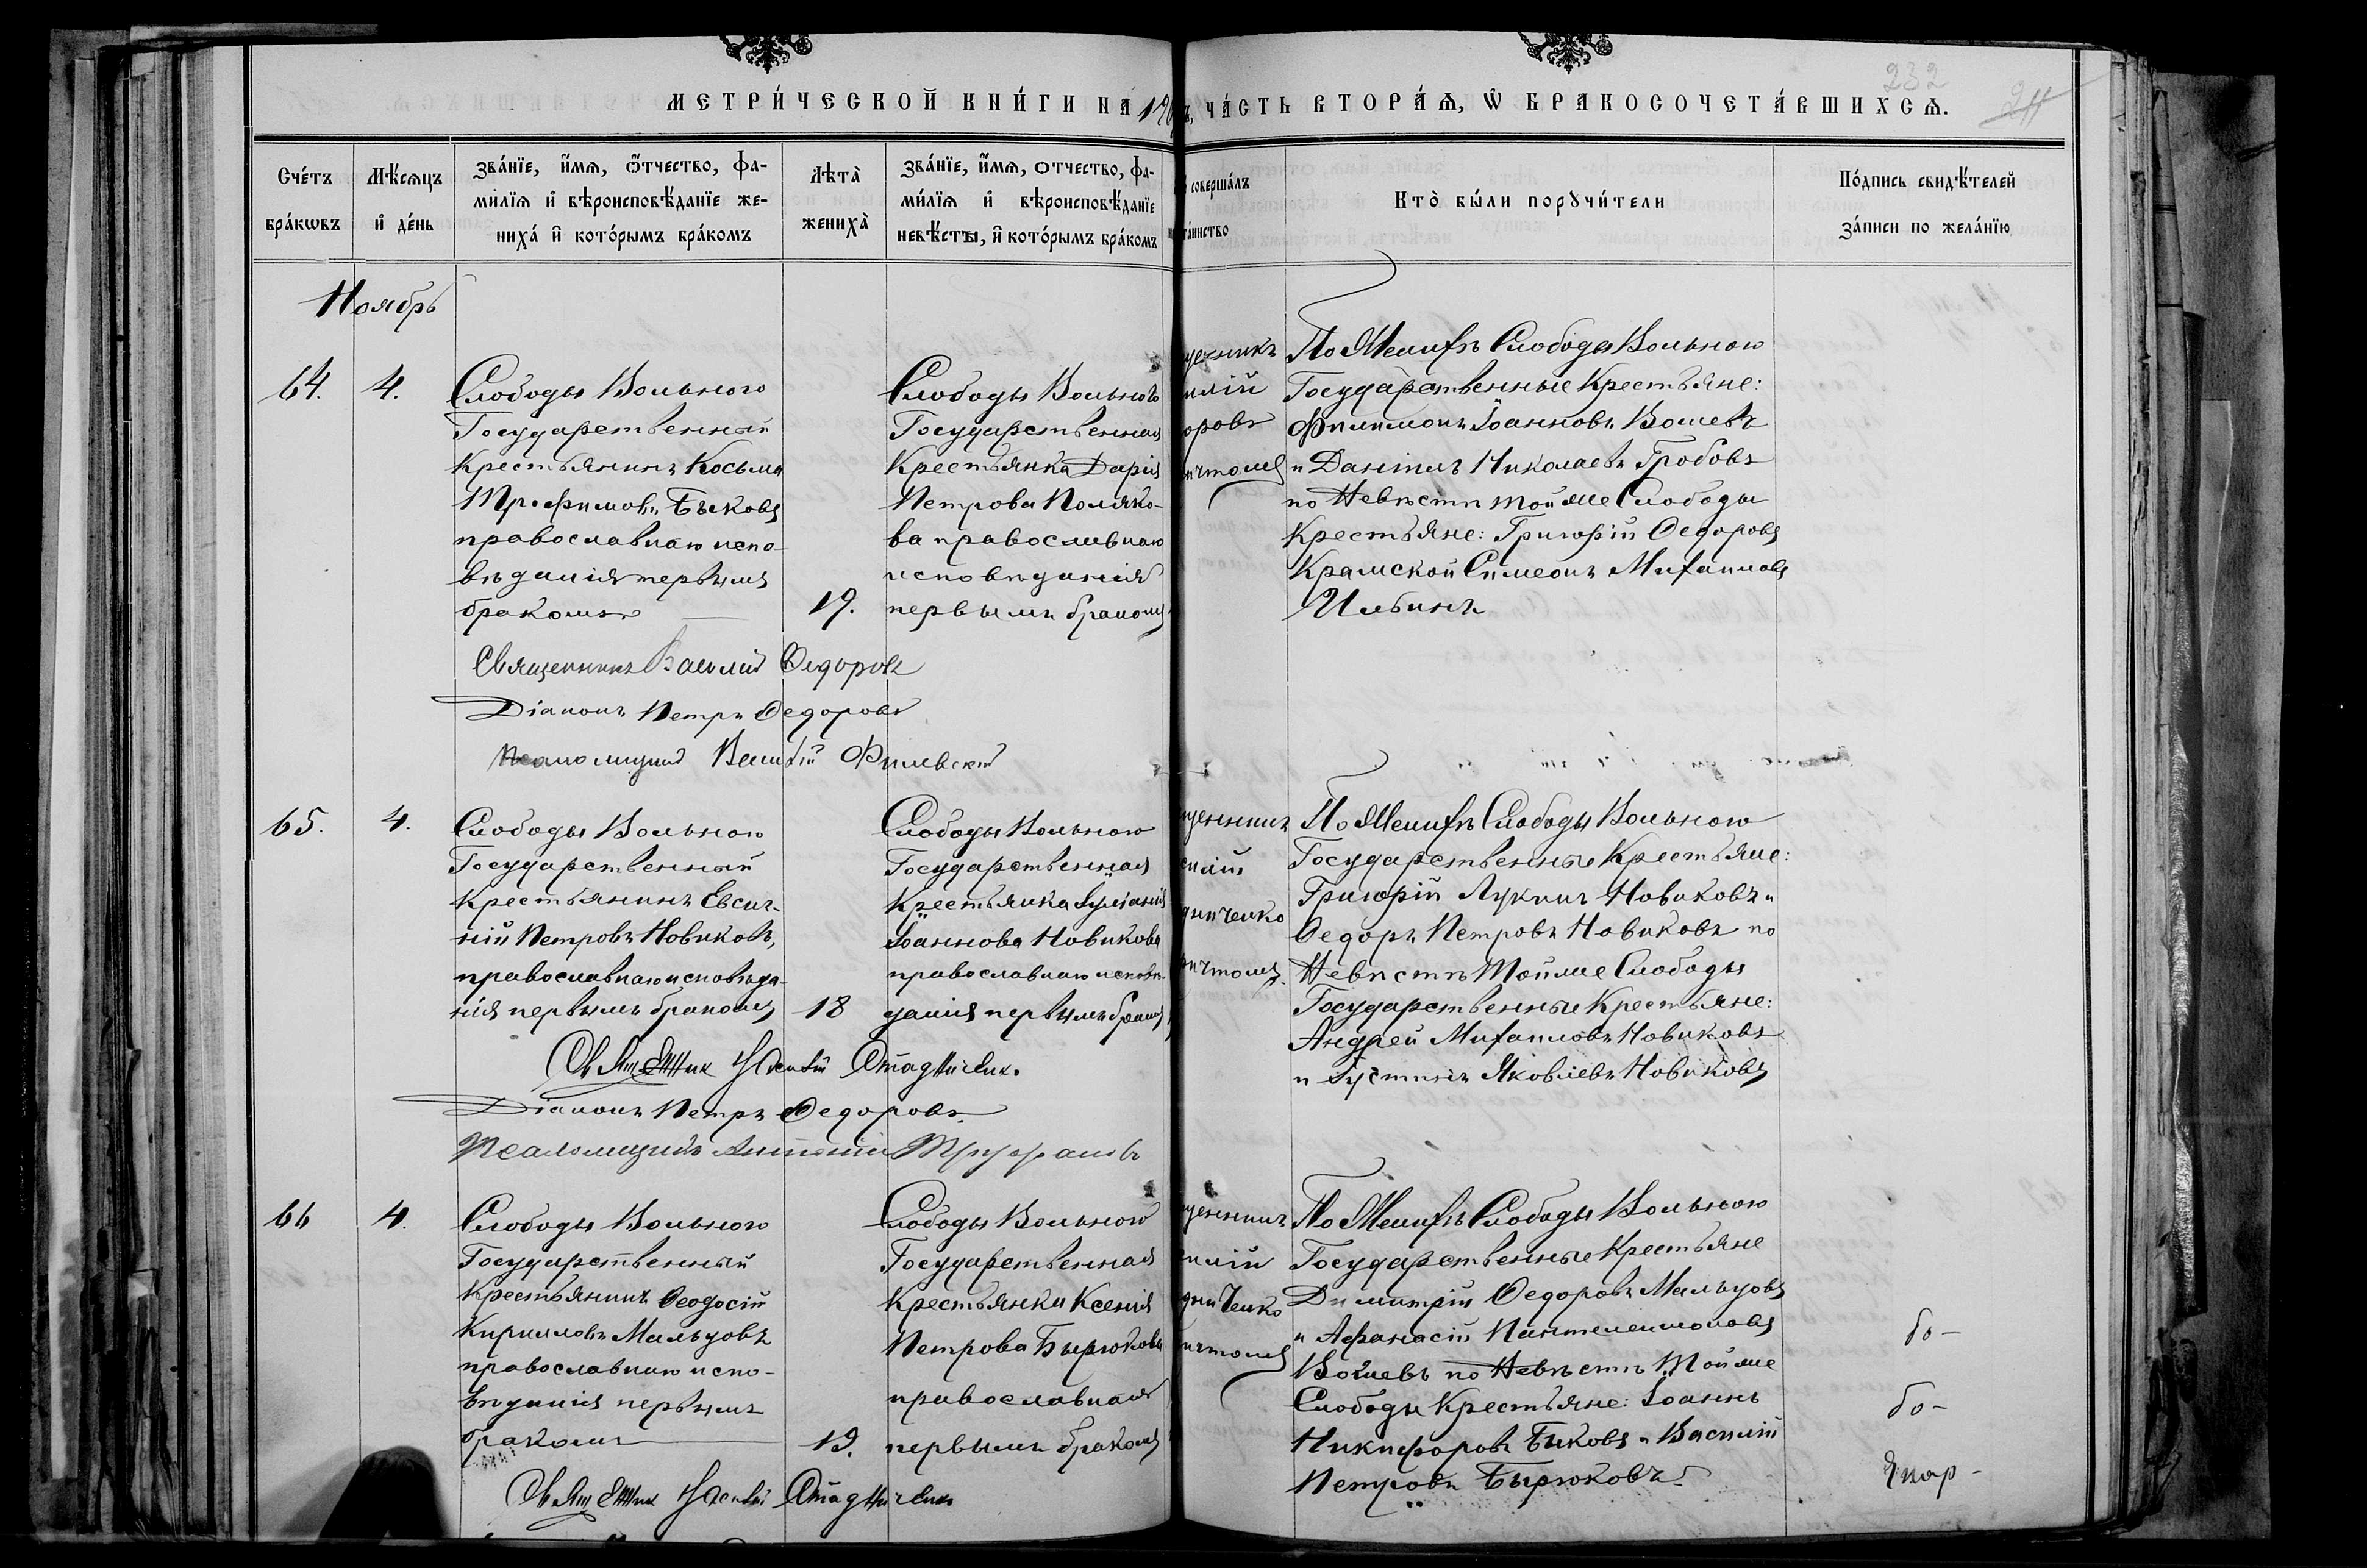 МЕТРИ́ЧЕСКОЙ КНИ́ГИ НА 18 ЧА́СТЬ ВТОРА́Ѧ, Ѡ БРАКОСОЧЕТА́ВШИХСѦ.
232
Сче́тъ бра́кѡвъ
Мѣ́сѧцъ и҆ де́нь
Зва́нїе, и҆́мѧ, ѻ҆́тчество, фа-
ми́лїѧ и҆ вѣроисповѣ́данїе же-
ниха́ и҆ кото́рымъ бра́комъ
Лѣта̀
жениха̀
Зва́нїе, и҆́мѧ, отчество, фа-
ми́лїѧ и҆ вѣроисповѣ́данїе
невѣ́сты, и҆ кото́рымъ бра́комъ
совершалъ
таинство
Кто̀ бы́ли порꙋчи́тели
По́дпись свидѣ́телей
за́писи по жела́нїю
Ноябрь
64.
4.
Слободы Вольного
Государственный
Крестьянинъ Косьма
Трофимовъ Быковъ
православнаго испо-
вѣданія первымъ
бракомъ
19.
Слободы Вольного
Государственная
Крестьянка Дарія
Петрова Поляко-
ва православнаго
исповѣданія
первымъ бракомъ
По Женихѣ Слободы Вольного
Государственные Крестьяне:
Филимонъ Іоанновъ Вошевъ
и Даніилъ Николаевъ Гробовъ
по Невѣстѣ той же Слободы
Крестьяне: Григорій Ѳедоровъ
Крамской Симеонъ Михаиловъ
Ильинъ
Священникъ Василій Ѳедоровъ
Діаконъ Петръ Ѳедоровъ
Псаломщикъ
65.
4.
Слободы Вольного
Государственный
Крестьянинъ Евсиг-
ній Петровъ Новиковъ,
православнаго исповѣда-
нія первымъ бракомъ
18
Слободы Вольного
Государственная
Крестьянка Іуліанія
Іоаннова Новикова
православнаго исповѣ-
данія первымъ бракомъ
По Женихѣ Слободы Вольного
Государственные Крестьяне:
Григорій Лукинъ Новиковъ и
Ѳедоръ Петровъ Новиковъ по
Невѣстѣ той же Слободы
Государственные Крестьяне:
Андрей Михаиловъ Новиковъ
и Іустинъ Яковлевъ Новиковъ
Священник
Діаконъ Петръ Ѳедоровъ
Псаломщикъ Антоній
66
4.
Слободы Вольного
Государственный
Крестьянинъ Ѳеодосій
Кирилловъ Мальцовъ
православнаго испо-
вѣданія первымъ
бракомъ
19.
Слободы Вольного
Государственная
Крестьянка Ксенія
Петрова Бырюкова
православная
первымъ бракомъ
По Женихѣ Слободы Вольного
Государственные Крестьяне
Димитрій Ѳедоровъ Мальцовъ
и Аѳанасій Пантелеимоновъ
Вошевъ по Невѣстѣ той же
Слободы Крестьяне: Іоаннъ
Никифоровъ Быковъ и Василій
Петровъ Бырюковъ
Священник